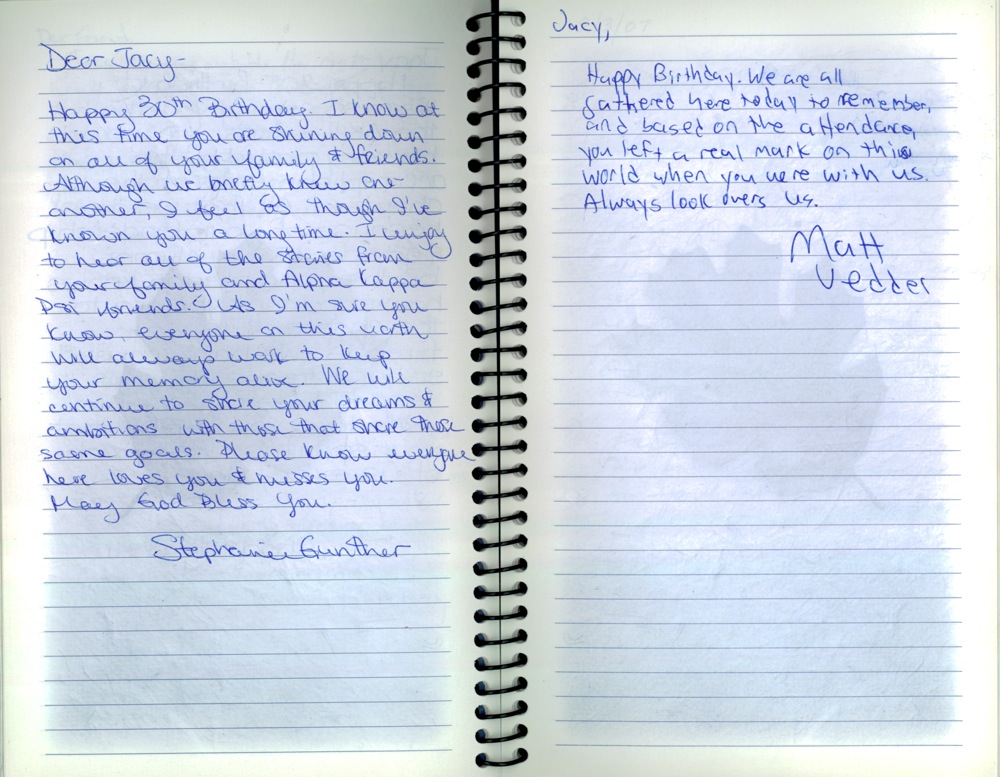 Dear Jacy-
Happy 30th Birthday. I know at
this time you are shining down
on all of your family & friends.
Although we briefly knew one
another, I feel as though I've
known you a long time. I enjoy
to hear all of the stories from
your family and Alpha Kappa
Psi friends. As I'm sure you
know, everyone on this earth
will always work to keep
your memory alive. We will
continue to share your dreams &
ambitions with those that share those
same goals. Please know everyone
here loves you & misses you.
May God Bless You.
Stephanie Gunther
Jacy,
Happy Birthday. We are all
gathered here today to remember,
and based on the attendance,
you left a real mark on this
world when you were with us.
Always look overs us.
Matt
Vedder